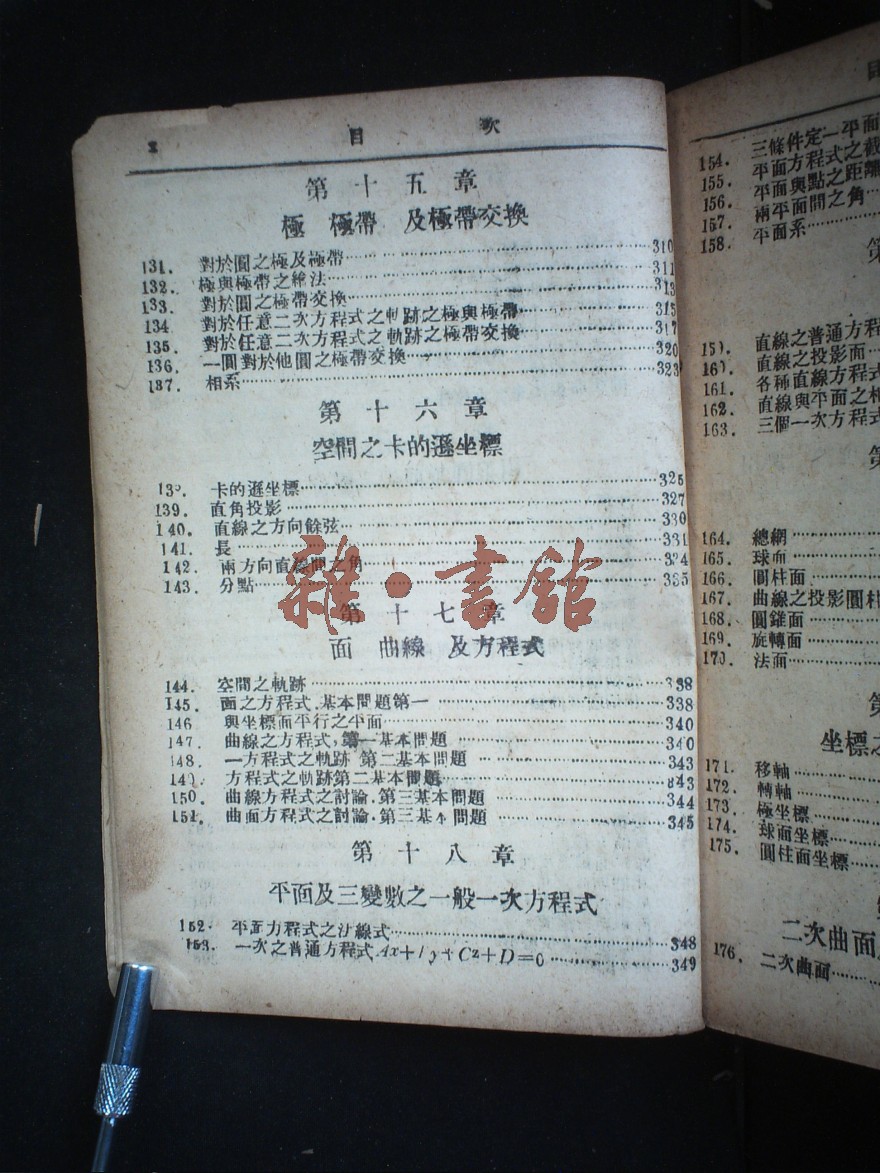 目 次
第十五章
極 極帶 及極帶交換
131. 對於圓之極及極帶 310
132. 極與極帶之繪法 311
133. 對於圓之極帶交換 313
134 對於任意二次方程式之軌跡之極與極帶 315
135. 對於任意二次方程式之軌跡之極帶交換 317
136. 一圓對於他圓之極帶交換 320
137. 相系 323
第十六章
空間之卡的遜坐標
卡的遜坐標 325
139. 直角投影 327
140. 直線之方向餘弦 330
141. 長 331
142. 兩方向直線間之角 334
143. 分點 335
雜·書館
第十七章
面 曲線 及方程式
144. 空間之軌跡 338
145. 面之方程式.基本問題第一 338
146 與坐標面平行之平面 340
147. 曲線之方程式,第一基本問題 340
148. 一方程式之軌跡 第二基本問題 343
149. 方程式之軌跡第二基本問題 343
150. 曲線方程式之討論.第三基本問題 344
151. 曲面方程式之討論.第三基本問題 345
第十八章
平面及三變數之一般一次方程式
152. 平面方程式之法線式 348
153. 一次之普通方程式Ax+By+Cz+D=0 349
154. 三條件定一平面
155. 平面方程式之截
156. 平面與點之距離
157. 兩平面間之角
158. 平面系
第
159. 直線之普通方程
160. 直線之投影面
161. 各種直線方程式
162. 直線與平面之
163. 三個一次方程式
第
164. 總網
165. 球面
166. 圓柱面
167. 曲線之投影圓柱
168. 圓錐面
169. 旋轉面
170. 法面
第
坐標之
171. 移軸
172. 轉軸
173. 極坐標
174. 球面坐標
175. 圓柱面坐標
二次曲面
176. 二次曲面